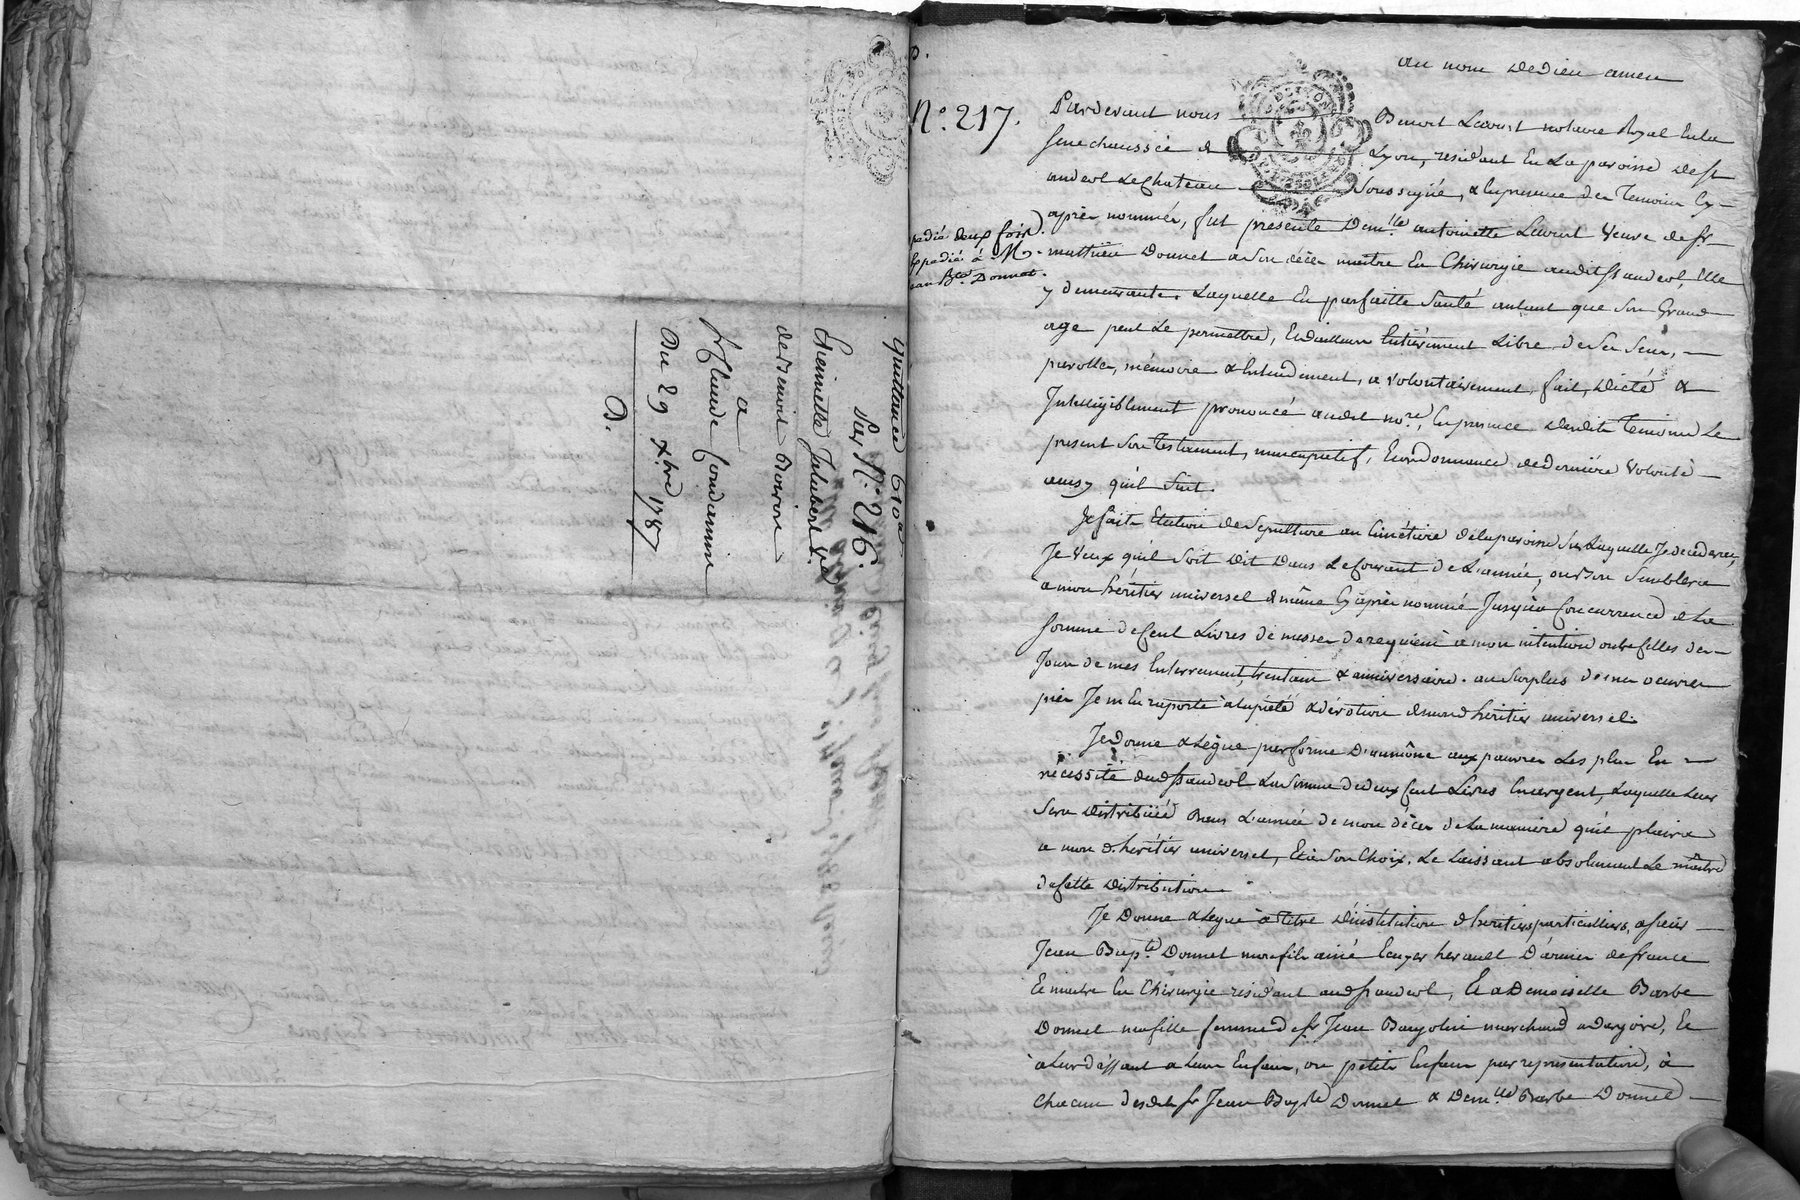 Quittance 610#
Sur N.° 216.
Etiennette Jalabert V.ve
de Benoit Boiron
a
Sr. Claude fondamine
Du 29 Xbre 1787
D.
N.° 217.
au nom de dieu amen
Pardevant nous Benoit Laurent notaire Royal En la
senechaussée de Lyon, residant En La paroisse de st
andeol Le Chateau soussigné, & En presence des Temoins Cy
après nommés, fut presente Dem.lle antoinette Laurent Veuve de sr
expedié deux fois.
Expedié à Mr.
Jean B.te Donnet.
mathieu Donnet a son décès maitre En Chirurgie audit st andeol, Elle
y demeurante. Laquelle En parfaitte Santé autant que son Grand
age peut Le permettre, Et d'ailleurs Entièrement Libre de ses sens,
parolle, mémoire & Entendement, a volontairement fait, dicté &
Intelligiblement prononcé audit no.re, En presence desdits Temoins Le
present son Testament, nuncupatif, Et ordonnance de dernière volonté
ainsy qu'il suit.
Je fais Election de sepulture au Cimetière de la paroisse sur Laquelle Je decederai,
Je veux qu'il soit dit dans Le Courant de L'année, ou bon semblera
a mon héritier universel Cy après nommé Jusqu'a Concurrence de La
somme de Cent Livres de messes de requiem a mon intention outre Celles des
Jours de mes Enterrement, trentain & anniversaire. au surplus de mes oeuvres
pies Je m'En raporte à la piété & dévotion de mond. héritier universel.
Je donne & Lègue par forme D'aumône aux pauvres Les plus En
nécessité dud. st andeol La somme de deux Cent Livres En argent, Laquelle Leur
sera distribuée dans L'année de mon décès de La manière qu'il plaira
a mon d. héritier universel, Et a son Choix, Le Laissant absolument Le maitre
de Cette distribution.
Je Donne & Legue a titre D'institution d'heritiers particulliers, a sieur
Jean Bap.te Donnet mon fils ainé Ecuyer herault D'armes de france
Et maitre En Chirurgie residant aud. st andeol, Et a Demoiselle Barbe
Donnet ma fille femme de sr Jean marchand a dargoire, Et
à Leur déffaut a Leurs Enfans, ou petits Enfans par representation, à
Chacun desdits sr Jean Bap.te Donnet & Dem.lle Barbe Donnet